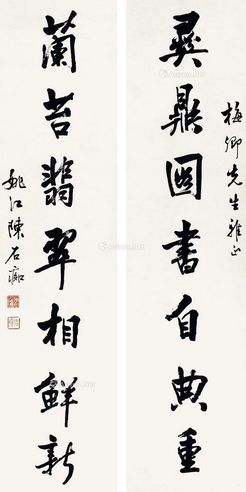 梅卿先生雅正
彝鼎圖書自典重
蘭苕翡翠相鮮新
姚江陳石癡